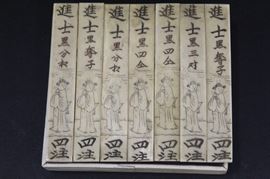 進士黑分
四注
進士黑拳子
四注
進士黑分
四注
進士黑四
四注
進士黑四
四注
進士黑三对
四注
進士黑拳子
四注